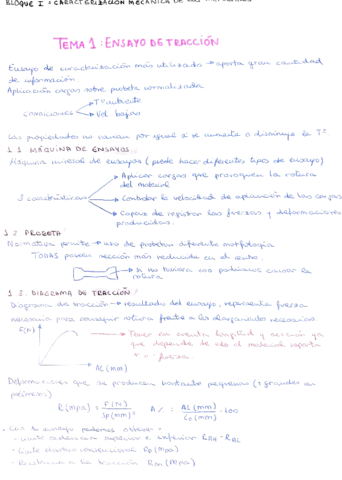 BLOQUE I : CARACTERIZACIÓN MECÁNICA DE LOS
TEMA 1 : ENSAYO DE TRACCIÓN
Ensayo de caracterización más utilizado → aporta gran cantidad
de información
Aplicación cargas sobre probeta normalizada
CONDICIONES
Tª ambiente
Vel. bajas
Las propiedades no varían por igual si se aumenta o disminuye la Tª
1.1 MÁQUINA DE ENSAYOS
Máquina universal de ensayos (puede hacer diferentes tipos de ensayo)
3 características
Aplicar cargas que provoquen la rotura
del material
Controlar la velocidad de aplicación de las cargas
Capaz de registrar las fuerzas y deformaciones
producidas.
1.2 PROBETA
Normativa permite → uso de probetas diferente morfología
TODAS poseen sección más reducida en el centro
si no tuviera no podríamos causar la
rotura
1.3 DIAGRAMA DE TRACCIÓN
Diagrama de tracción → resultado del ensayo, representa fuerza
necesaria para conseguir rotura frente a los alargamientos necesarios
F(N)
Tener en cuenta longitud y sección ya
que depende de ello el material soporta
fuerza.
ΔL (mm)
Deformaciones que se producen bastante pequeñas (+ grandes en
polímeros)
R(Mpa) = F(N) / So(mm)² A % = ΔL(mm) / Lo(mm) · 100
Con el ensayo podemos obtener:
- Límite superior e inferior ReH - ReL
- Límite elástico convencional Rp (Mpa)
- Resistencia a la tracción Rm (Mpa)